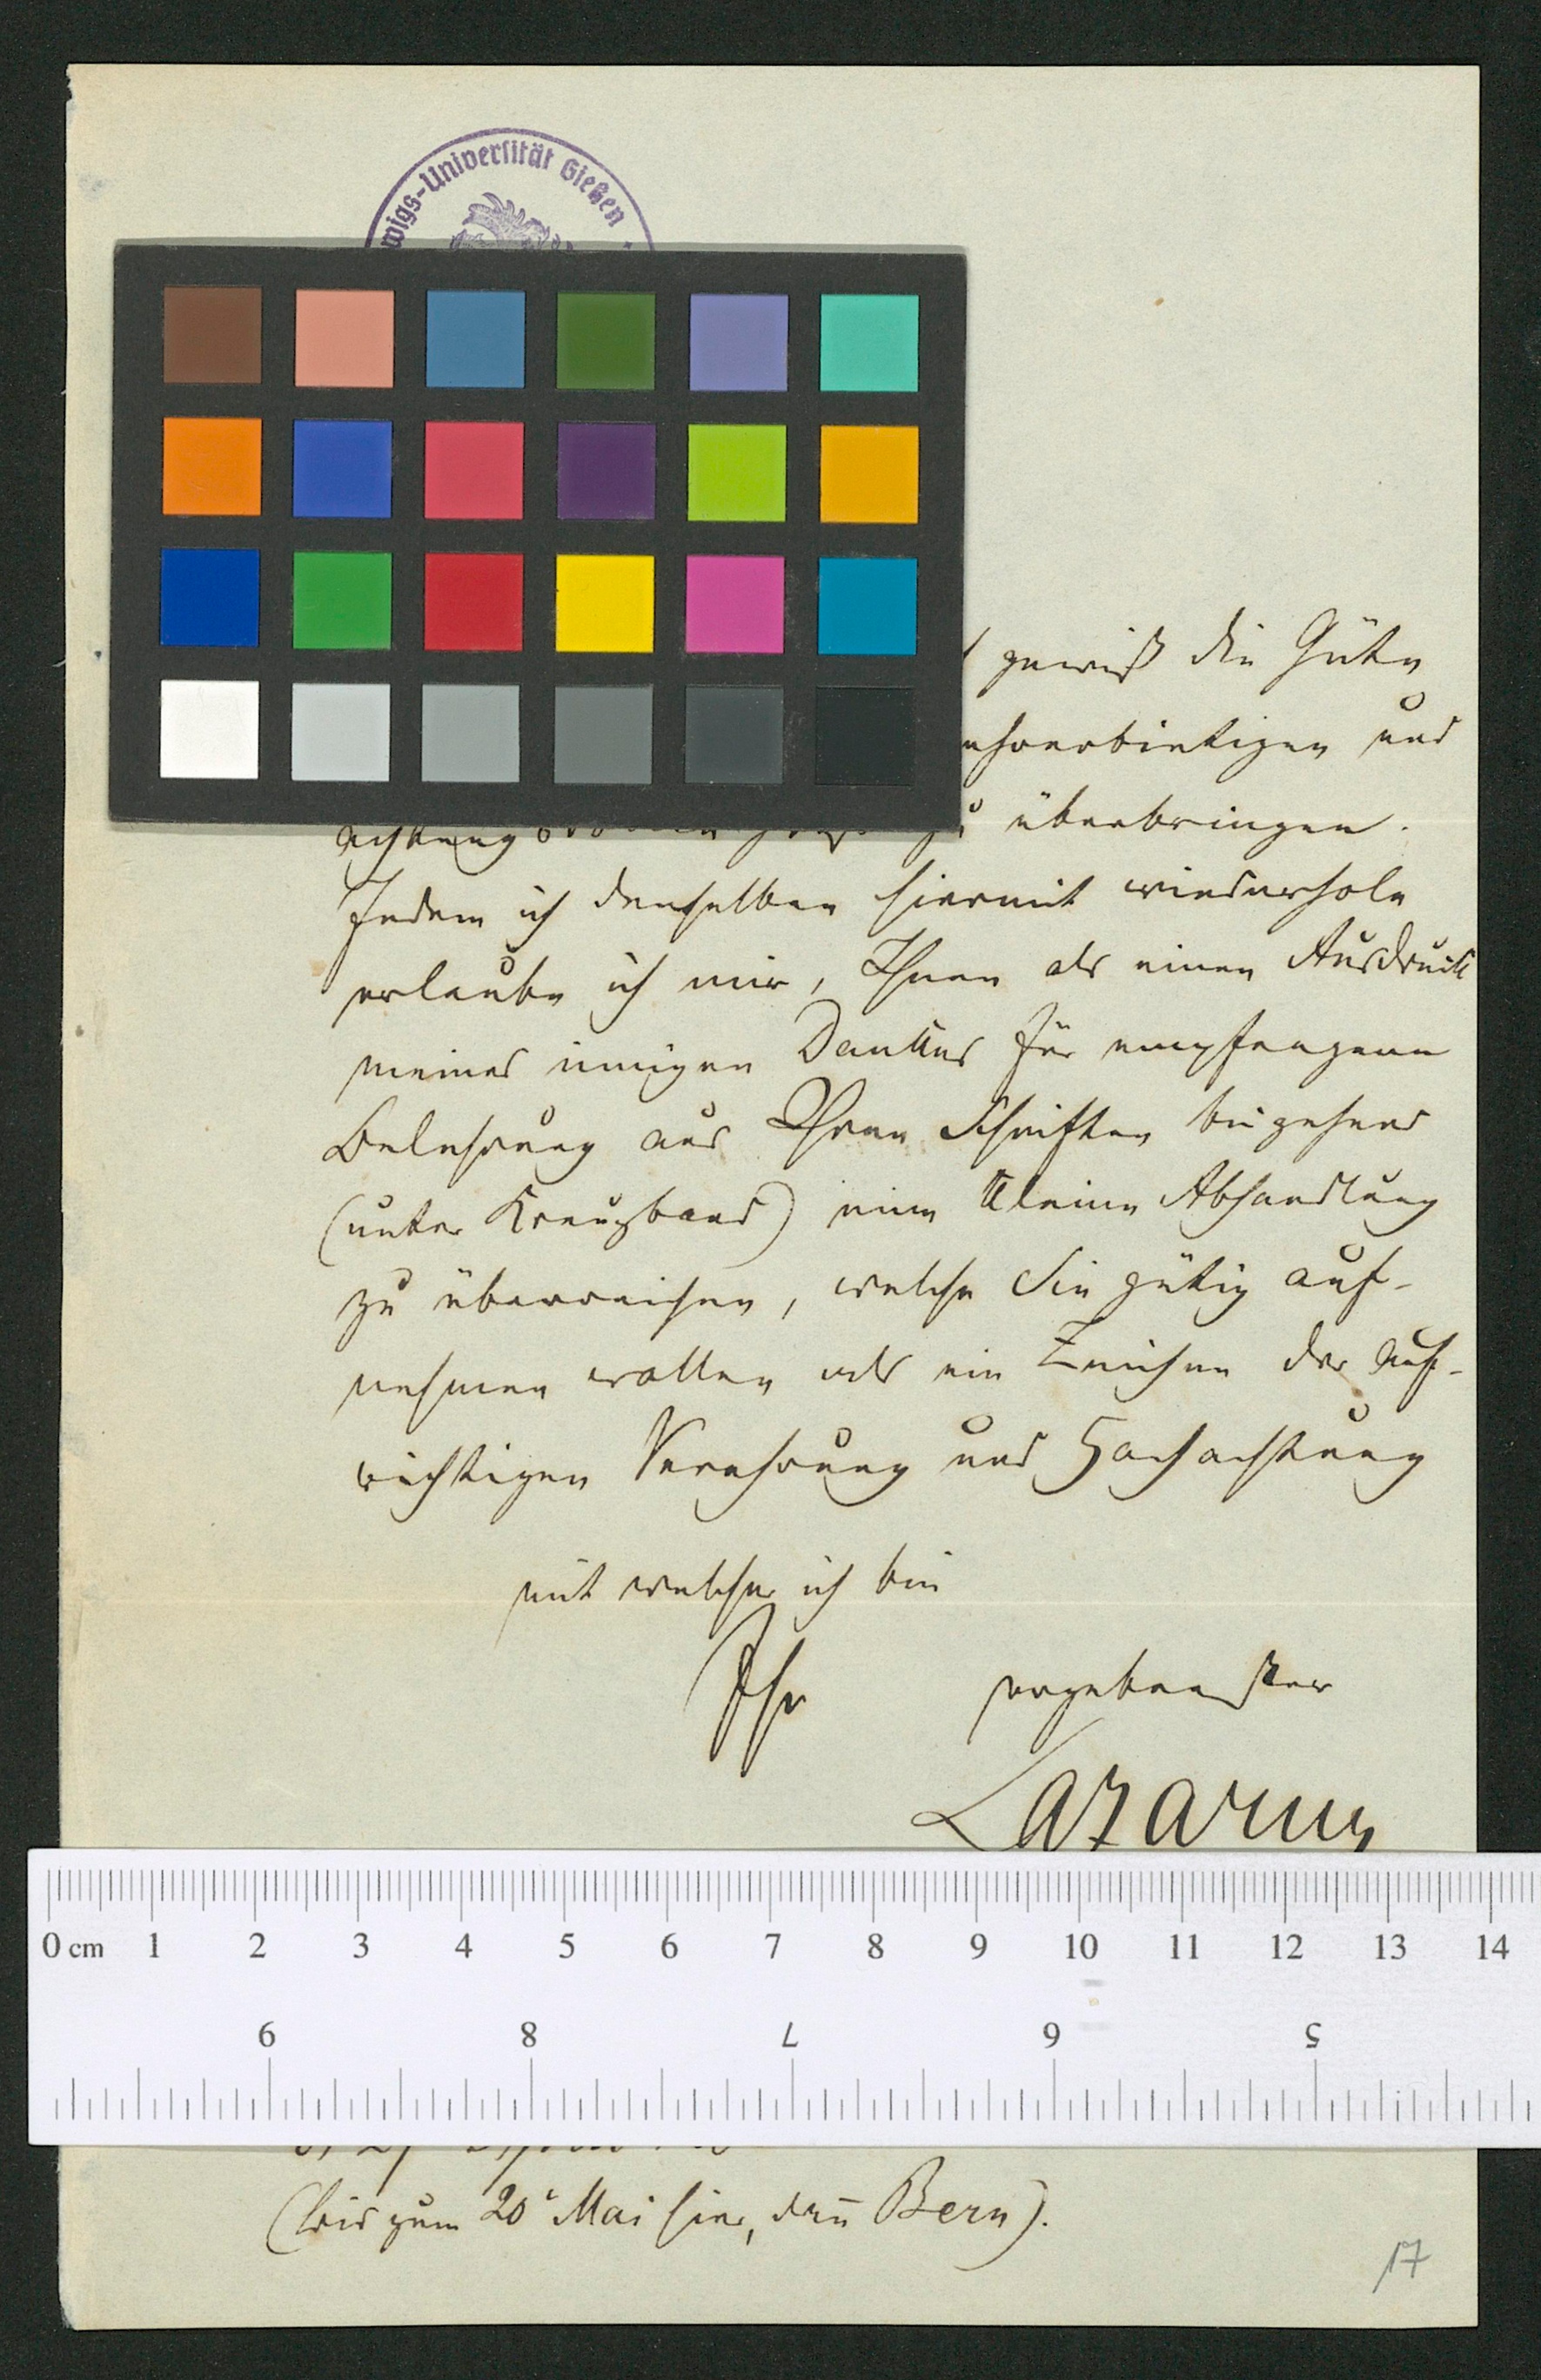 wigs-Universität Gießen
gewiß die Güte
ehrerbietigen und
achtung zu überbringen.
Indem ich denselben hiermit wiederhole
erlaube ich mir, Ihnen als einen Ausdruck
meines innigen Dankes für empfangene
Belehrung aus Ihren Schriften beigehend
(unter Kreuzband) eine kleine Abhandlung
zu überreichen, welche Sie gütig auf-
nehmen wollen als ein Zeichen der auf-
richtigen Verehrung und Hochachtung
mit welcher ich bin
Ihr ergebenster
Lazarus
0 cm 1 2 3 4 5 6 7 8 9 10 11 12 13 14
9 8 7 6 5
(bis zum 20 Mai hier, dann Bern).
17